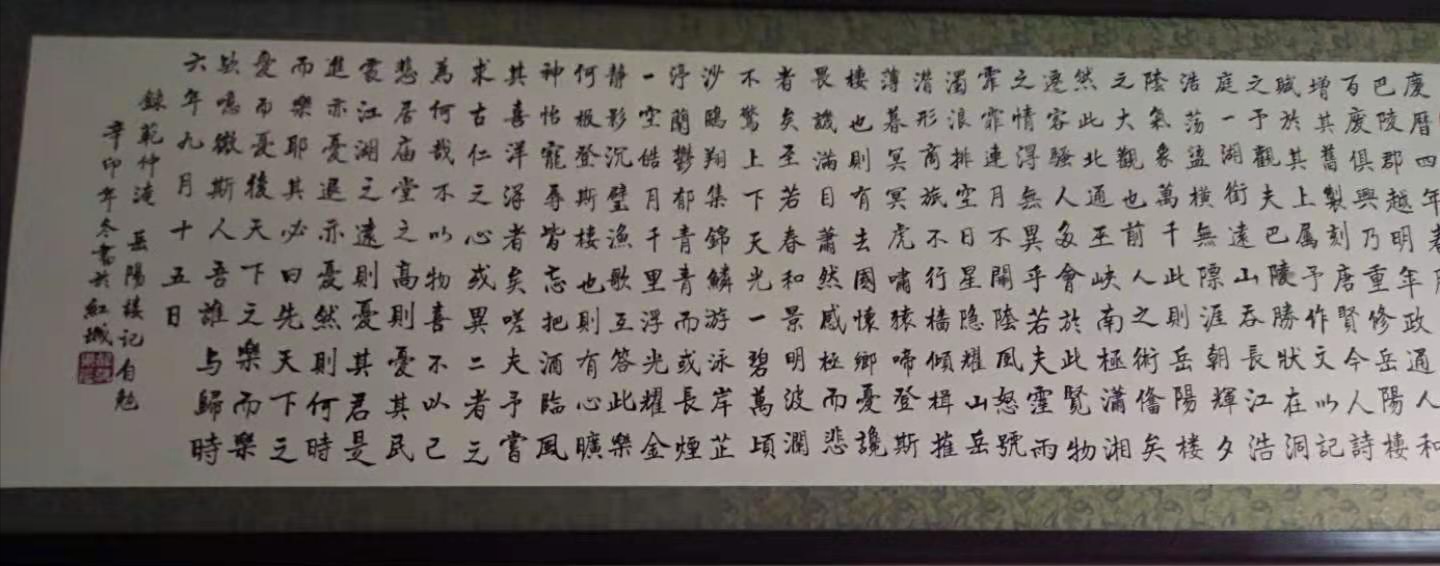 庆曆四年春
巴陵郡越明年政通人和
百廢俱興乃重修岳陽樓
增其舊製刻唐賢今人詩
賦於其上属予作文以記
之予觀夫巴陵勝狀在洞
庭一湖銜遠山吞長江浩
浩荡盪橫無漈涯朝輝夕
陰氣象萬千此則岳陽樓
之大觀也前人之術俻矣
然此北通至峽南極瀟湘
遷客騷人多會於此覽物
之情浔無異乎若夫霪雨
霏霏連月不開陰風怒號
濁浪排空日星隐耀山岳
潜形商旅不行檣傾楫摧
薄暮冥冥虎嘯猿啼登斯
樓也則有去國懷鄉憂讒
畏譏滿目蕭然感極而悲
者矣至若春和景明波瀾
不驚上下天光一碧萬頃
沙鷗翔集錦鱗游泳岸芷
汀蘭鬱郁青青而或長煙
一空皓月千里浮光耀金
靜影沉璧漁歌互答此樂
何极登斯樓也則有心曠
神怡寵辱皆忘把酒臨風
其喜洋浔者矣嗟夫予嘗
求古仁之心或異二者之
為何哉不以物喜不以己
悲居庙堂之高則憂其民
處江湖之遠則憂其君是
進亦憂退亦憂然則何時
而樂耶其必曰先天下之
憂而憂後天下之樂而樂
歟噫微斯人吾誰与歸時
六年九月十五日
錄範仲淹 岳陽樓记自勉
辛卯年冬書於紅城